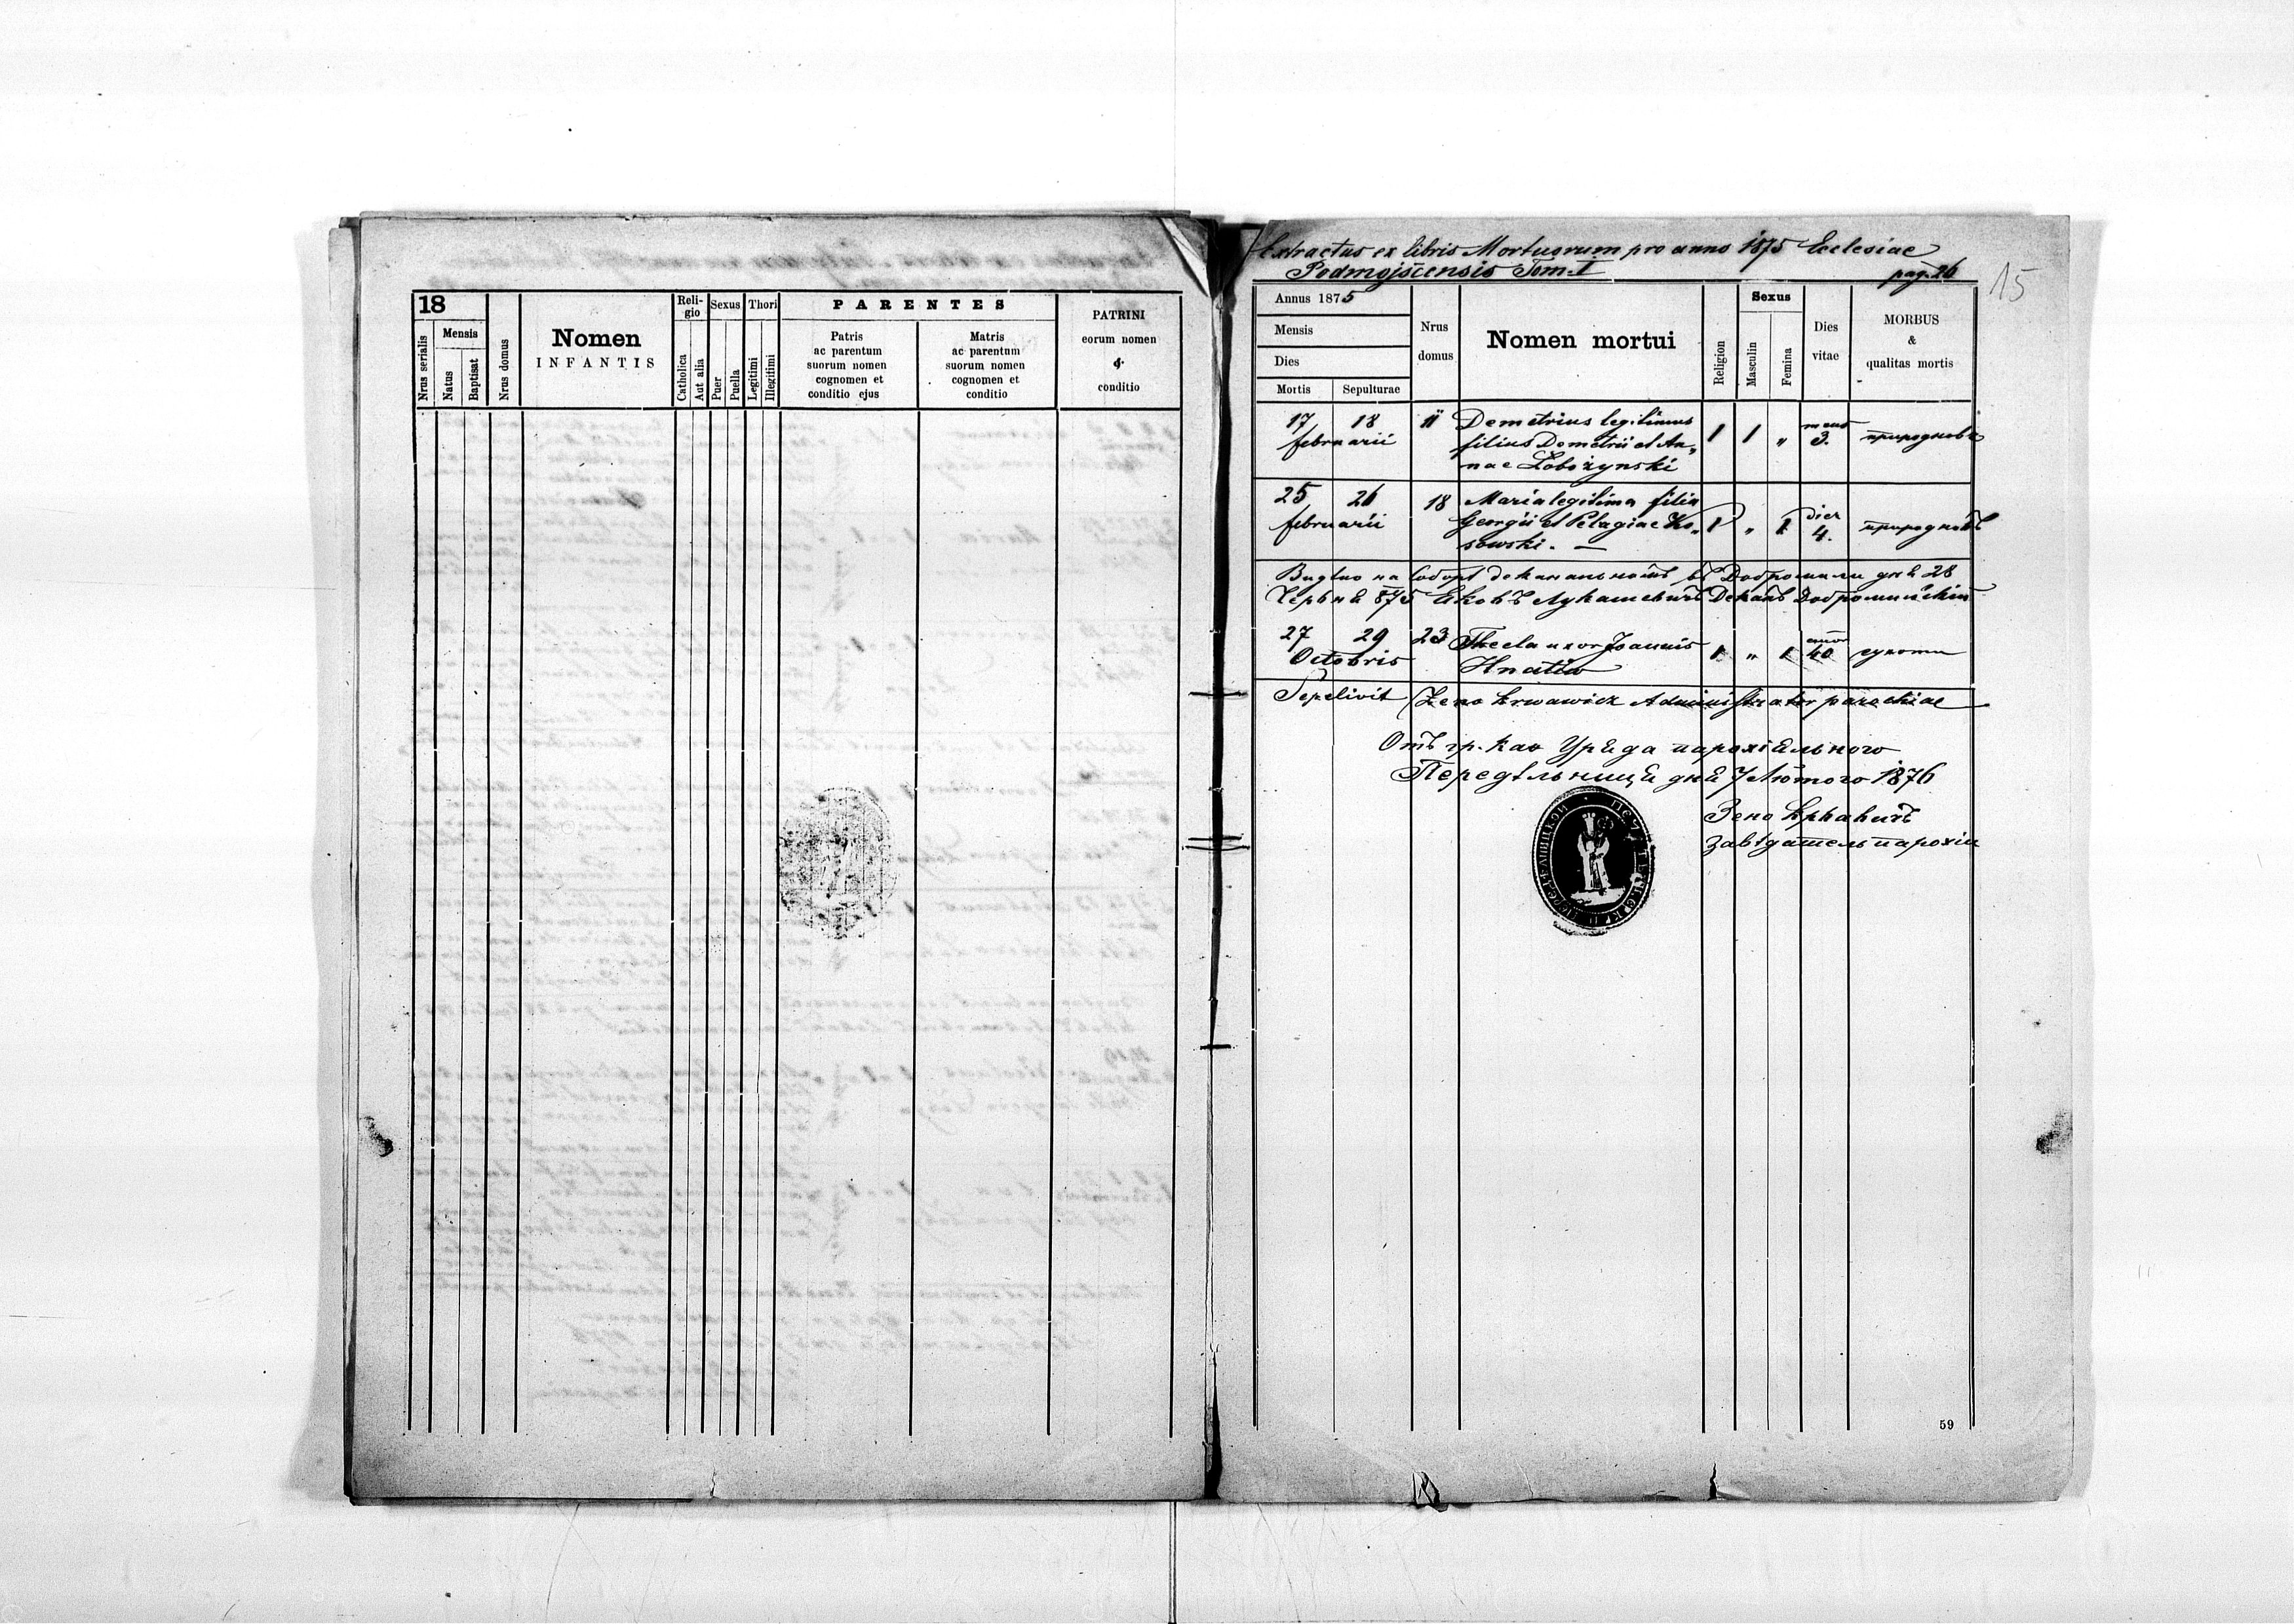 18
Nrus serialis
Mensis
Natus
Baptisat
Nrus domus
Nomen
INFANTIS
Reli-
gio
Catholica
Aut alia
Sexus
Puer
Puella
Thori
Legitimi
Illegitimi
PARENTES
Patris
ac parentum
suorum nomen
cognomen et
conditio ejus
Matris
ac parentum
suorum nomen
cognomen et
conditio
PATRINI
eorum nomen
&
conditio
Extractus ex libris Mortuorum pro anno 1875 Ecclesiae
Podmojscensis Tom. I pag. 26
15
Annus 1875
Mensis
Dies
Mortis Sepulturae
Nrus
domus
Nomen mortui
Religion
Sexus
Masculin
Femina
Dies
vitae
MORBUS
&
qualitas mortis
17 18 11 Demetrius legitimus
februarii filius Demetrii et An„ 1 1 „ 3.
nae Łobozynski
25 26 18 Maria legitima filia
februarii Georgii et Pelagiae Ko„ 1 „ 1 dier 4.
sowski. —
Видѣно на Соборѣ деканальномъ въ Добромили дня 28
Червня 875 Яковъ Лукашевичъ Деканъ Добромильскій
27 29 23 Thecla uxor Joannis 1 „ 1 40 сухоти
Octobris Hnatiw
Sepelivit Zeno Krwawicz Administrator parochiae
Отъ гр. кат Уряда парохіяльного
Передѣльница дня 7 Лютого 1876
Зено Крвавичъ
Завѣдатель парохіи
59